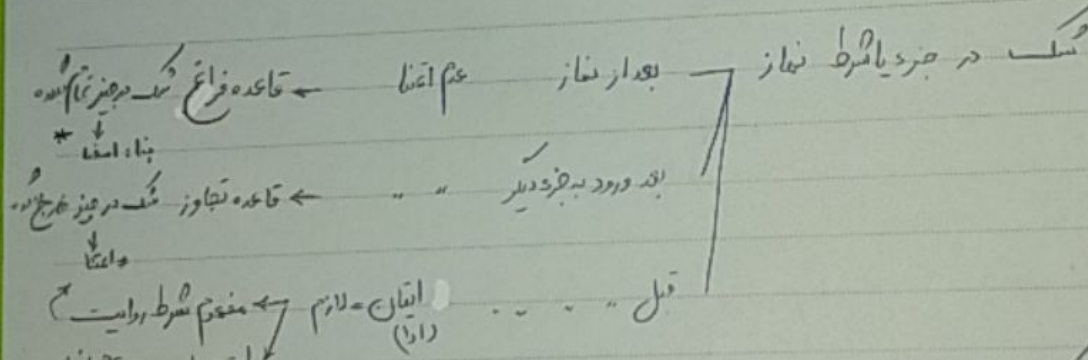 شک در جزء یا شرط نماز بعد از نماز عدم اعتنا ← قاعده فراغ شک در چیز تمام شده
↓ *
بعد ورود به جزء دیگر " " ← قاعده تجاوز شک در چیز خارج شده
↓
قبل " " " " اتیان = لازم ← مفهوم شرط روایت
(ادا)